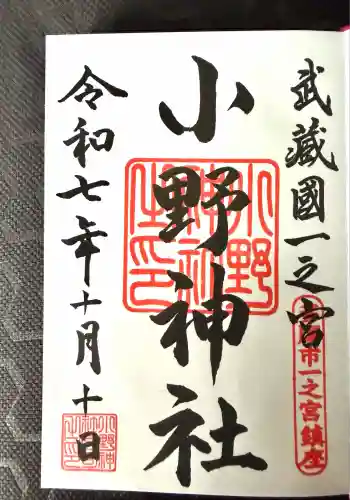 武蔵國一之宮
市一之宮鎮座
小野神社
小野神社之印
令和七年十月十日
小野神社之印